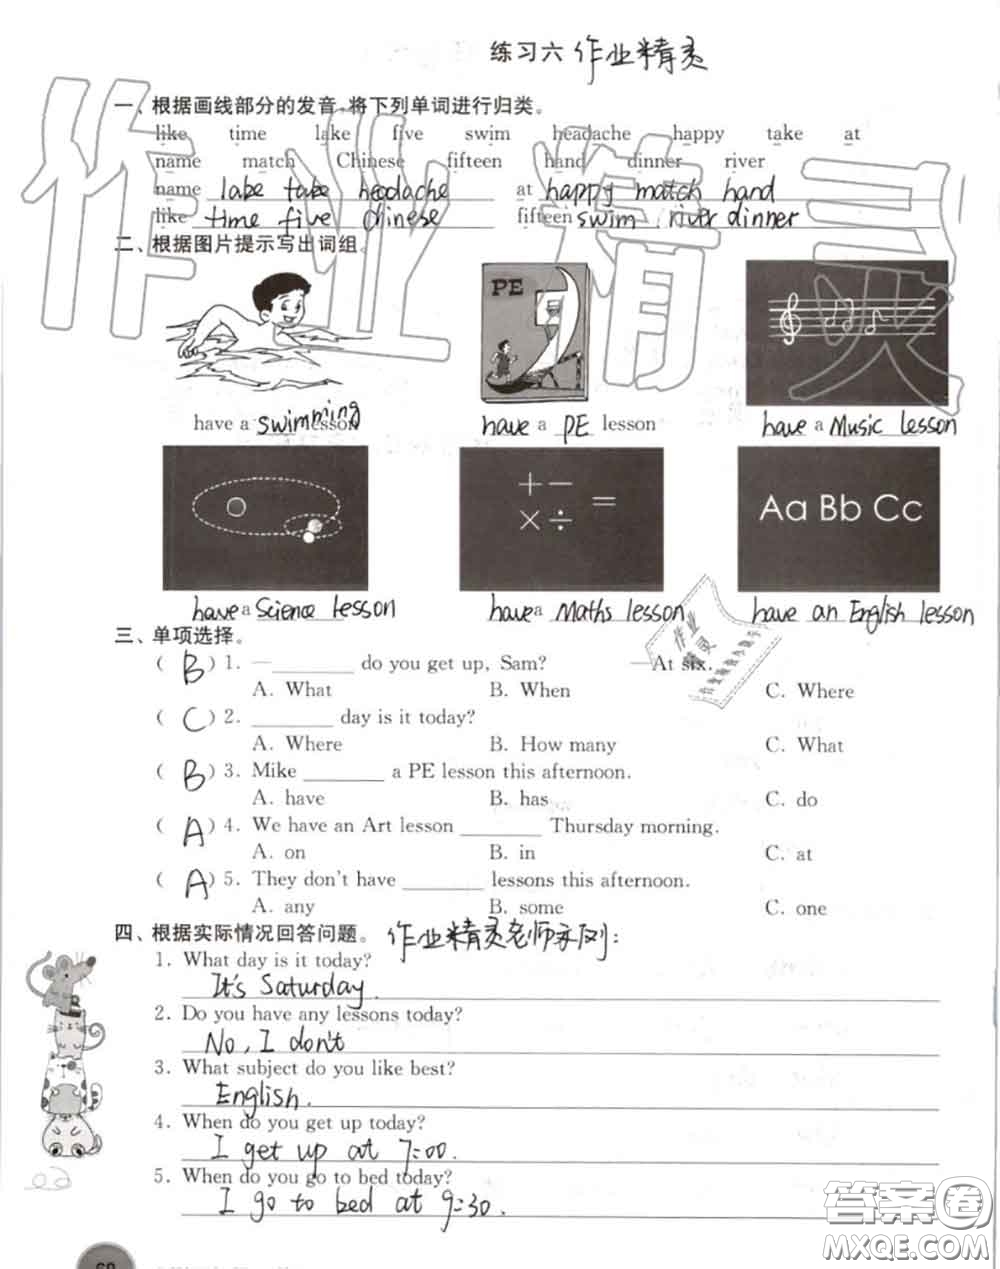 练习六 作业精灵
一、根据画线部分的发音,将下列单词进行归类。
like time lake five swim headache happy take at
name match Chinese fifteen hand dinner river
name lake take headache at happy match hand
like time five Chinese fifteen swim river dinner
二、根据图片提示写出词组。
PE
have a swimming lesson have a PE lesson have a Music lesson
+ − × ÷ =
Aa Bb Cc
have a Science lesson have a Maths lesson have an English lesson
三、单项选择。
( B ) 1. —________ do you get up, Sam? —At six.
A. What B. When C. Where
( C ) 2. ________ day is it today?
A. Where B. How many C. What
( B ) 3. Mike ________ a PE lesson this afternoon.
A. have B. has C. do
( A ) 4. We have an Art lesson ________ Thursday morning.
A. on B. in C. at
( A ) 5. They don't have ________ lessons this afternoon.
A. any B. some C. one
四、根据实际情况回答问题。 作业精灵老师示例:
1. What day is it today?
It's Saturday.
2. Do you have any lessons today?
No, I don't
3. What subject do you like best?
English.
4. When do you get up today?
I get up at 7:00.
5. When do you go to bed today?
I go to bed at 9:30.
60
作业精灵
答案卷
MXQE.COM